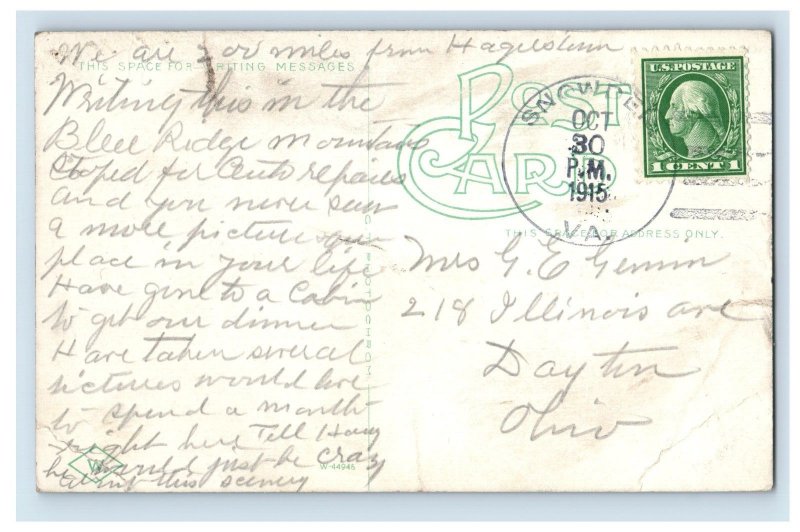 We are miles from Hagerstown
THIS SPACE FOR WRITING MESSAGES
Writing this in the
Blue Ridge mountains
stoped for Auto repairs
and you never saw
a more picturesque
place in your life
Have gone to a Cabin
to get our dinner
Have taken several
pictures would love
to spend a month
right here Tell Harry
he would just be crazy
about this scenery
W
W-44945
POST
CARD
THIS SPACE FOR ADDRESS ONLY.
U.S. POSTAGE
1 CENT 1
OCT
30
P.M.
1915
VA.
Mrs G. E.
218 Illinois ave
Dayton
Ohio